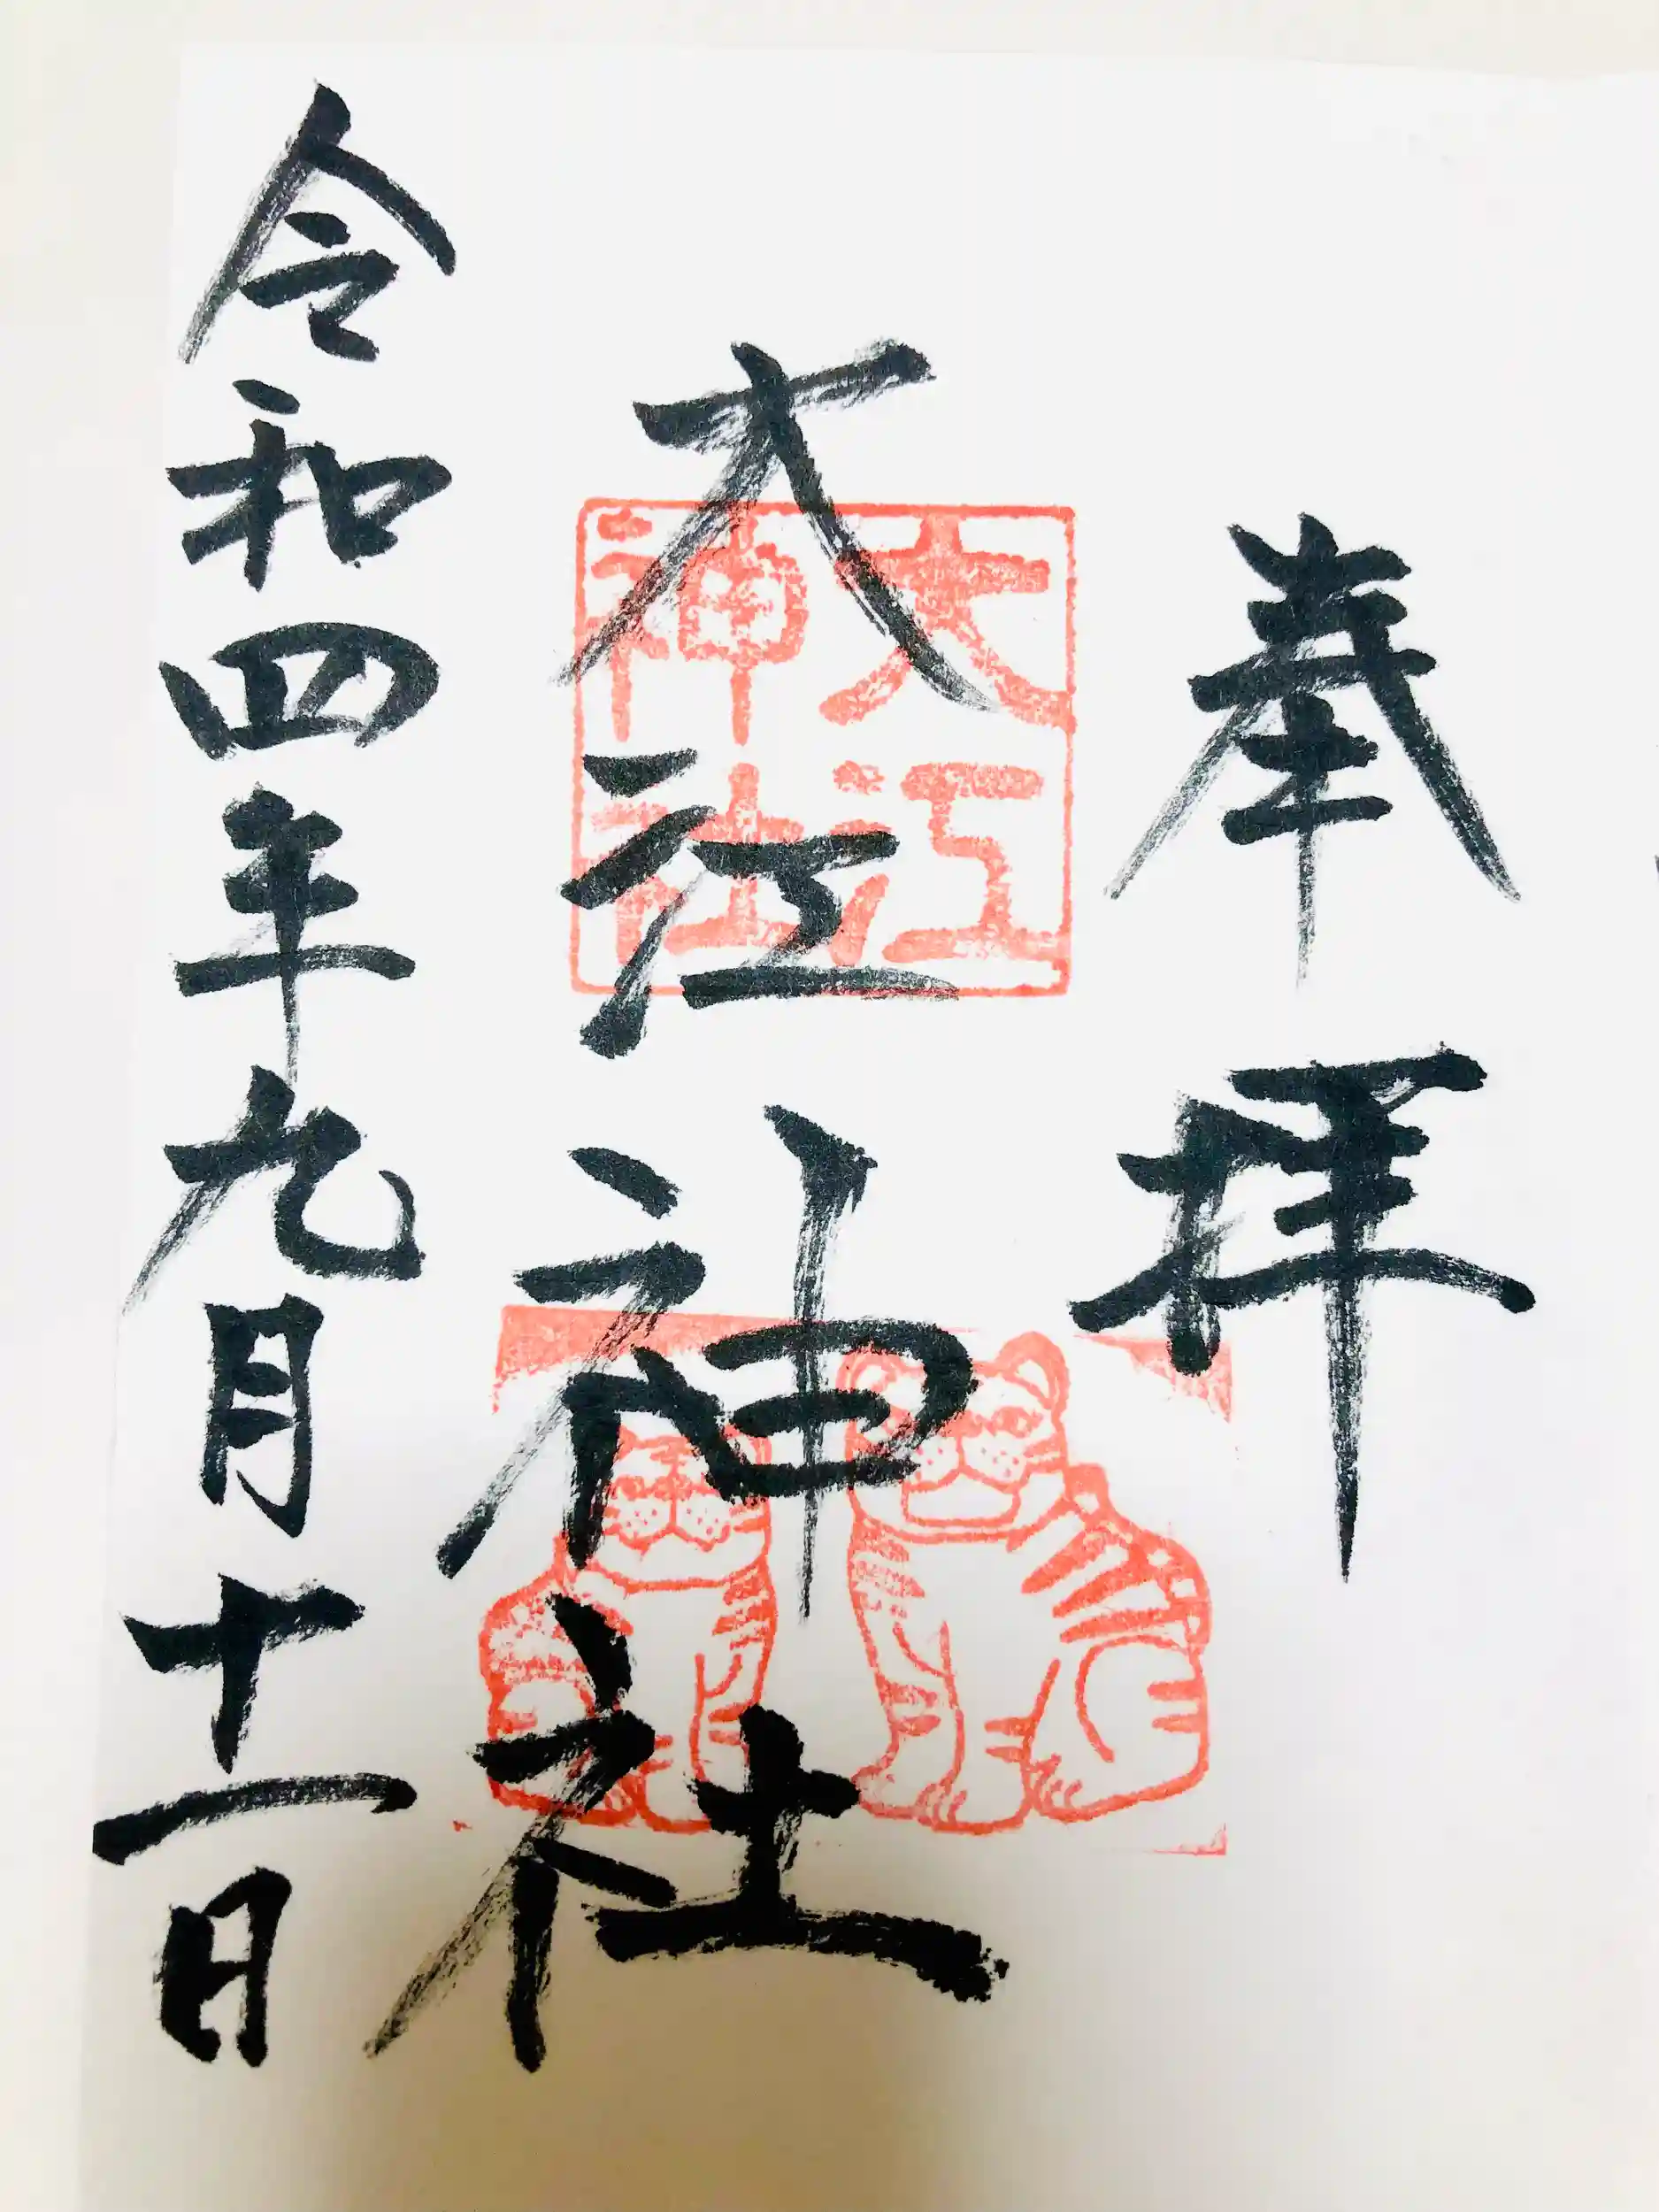 奉拝
大江神社
大江
神社
令和四年九月十一日